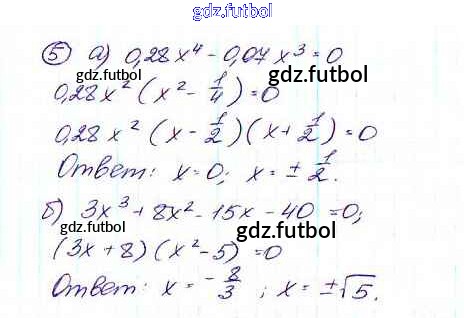 gdz.futbol
5 а) 0,28x⁴ - 0,07x³ = 0
gdz.futbol gdz.futbol
0,28x² (x² - 1/4) = 0
0,28x² (x - 1/2)(x + 1/2) = 0
gdz.futbol gdz.futbol
Ответ: x = 0; x = ± 1/2.
б) 3x³ + 8x² - 15x - 40 = 0;
gdz.futbol gdz.futbol
(3x + 8)(x² - 5) = 0
Ответ: x = - 8/3; x = ±√5.
gdz.futbol